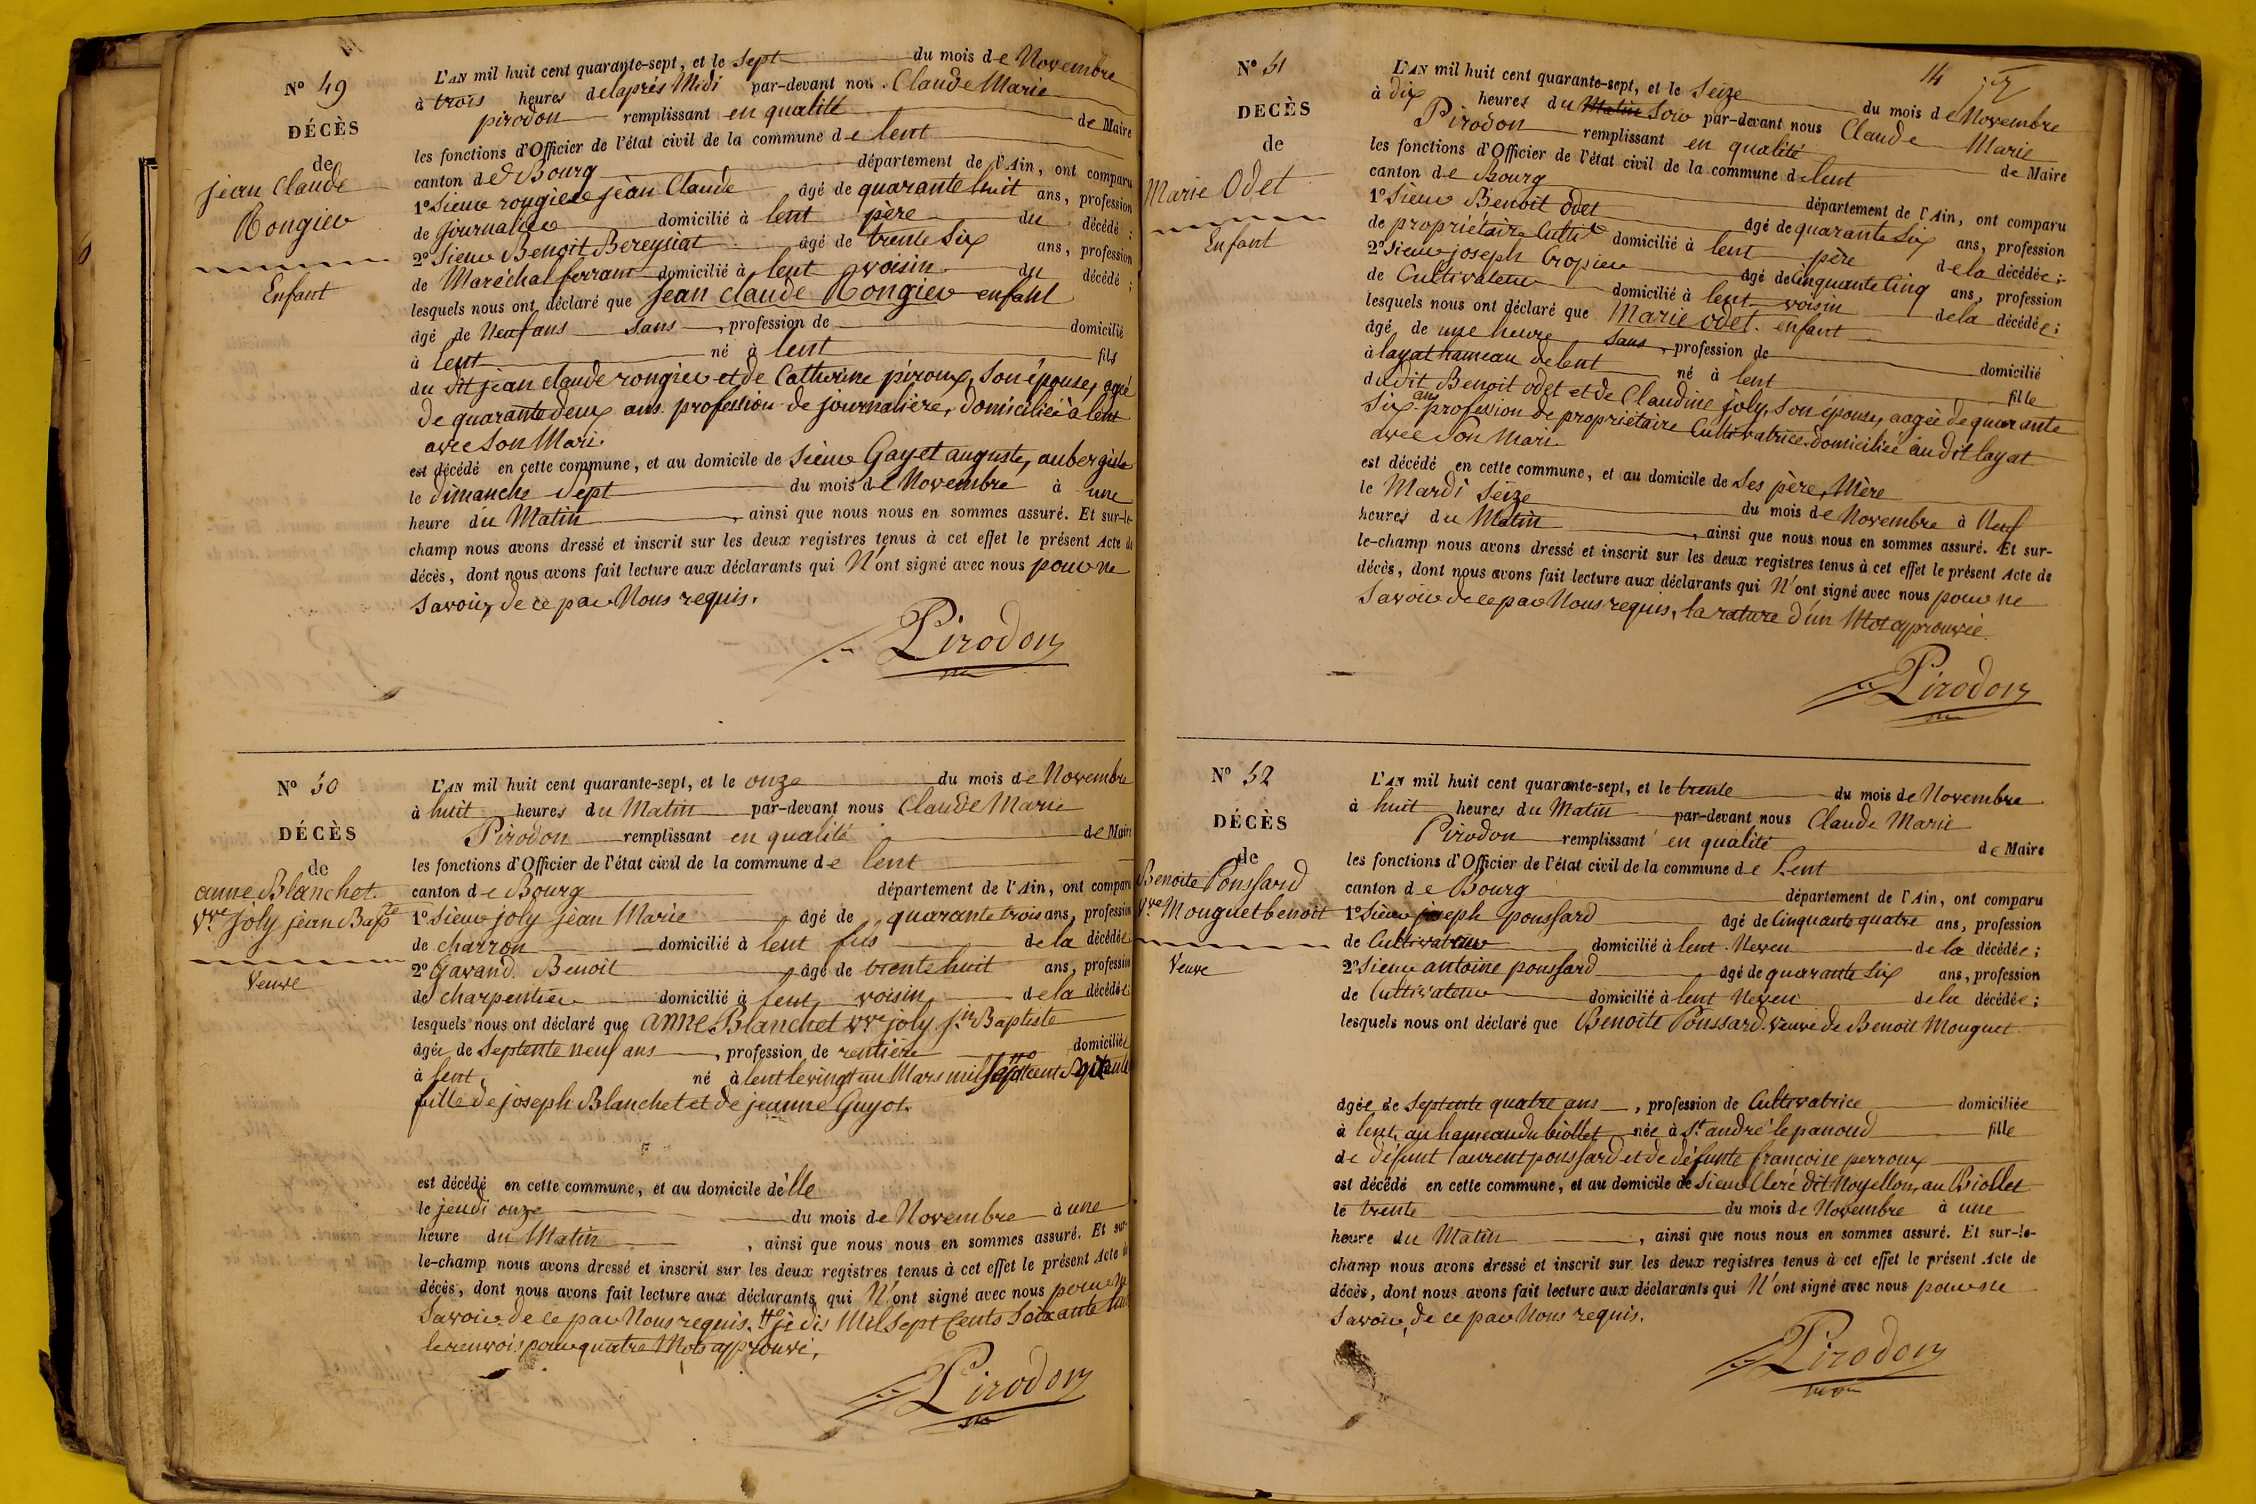 N° 49
DÉCÈS
de
jean Claude
Rongier
Enfant
L'AN mil huit cent quarante-sept, et le Sept du mois de Novembre
à trois heures delaprés Midi par-devant nous Claude Marie
pirodon remplissant en qualité de Maire
les fonctions d'Officier de l'état civil de la commune de lent
canton de Bourg département de l'Ain, ont comparu
1° Sieur rongier jean Claude âgé de quarante huit ans, profession
de journalier domicilié à lent père du décédé ;
2° Sieur Benoit Bereysiat âgé de trente Six ans, profession
de Maréchal ferrant domicilié à lent voisin du décédé ;
lesquels nous ont déclaré que jean claude Rongier enfant
âgé de Neuf ans sans , profession de domicilié
à lent né à lent fils
du dit jean claude rongier et de Catherine piroux, Son épouse, agée
de quarante deux ans profession de journalière, domiciliée à lent
avec Son Mari.
est décédé en cette commune, et au domicile de Sieur Gayet auguste, aubergiste
le dimanche Sept du mois de Novembre à une
heure du Matin , ainsi que nous nous en sommes assuré. Et sur-le-
champ nous avons dressé et inscrit sur les deux registres tenus à cet effet le présent Acte de
décès, dont nous avons fait lecture aux déclarants qui N'ont signé avec nous pour ne
Savoir, de ce par Nous requis.
Pirodon
N° 50
DÉCÈS
de
anne Blanchet
Vve Joly jean Bapte
Veuve
L'AN mil huit cent quarante-sept, et le onze du mois de Novembre
à huit heures du Matin par-devant nous Claude Marie
Pirodon remplissant en qualité de Maire
les fonctions d'Officier de l'état civil de la commune de lent
canton de Bourg département de l'Ain, ont comparu
1° Sieur joly jean Marie âgé de quarante trois ans, profession
de charron domicilié à lent fils de la décédée
2° Gavand Benoit âgé de trente huit ans, profession
de charpentier domicilié à lent voisin de la décédée
lesquels nous ont déclaré que anne Blanchet vve joly jn Baptiste
âgée de Septente neuf ans , profession de rentière domiciliée
à lent né à lent le vingt un Mars mil Sept cent
fille de joseph Blanchet et de jeanne Guyot.
est décédé en cette commune, et au domicile d'elle
le jeudi onze du mois de Novembre à une
heure du Matin , ainsi que nous nous en sommes assuré. Et sur-
le-champ nous avons dressé et inscrit sur les deux registres tenus à cet effet le présent Acte de
décès, dont nous avons fait lecture aux déclarants qui N'ont signé avec nous pour ne
Savoir de ce par Nous requis. je dis Mil Sept Cents Soixante huit
le renvois pour quatre Mots approuvé.
Pirodon
14
N° 51
DECÈS
de
Marie Odet
Enfant
L'AN mil huit cent quarante-sept, et le Seize du mois de Novembre
à dix heures du Matin Soir par-devant nous Claude Marie
Pirodon remplissant en qualité de Maire
les fonctions d'Officier de l'état civil de la commune de lent
canton de Bourg département de l'Ain, ont comparu
1° Sieur Benoit Odet âgé de quarante Six ans, profession
de propriétaire Cultr domicilié à lent père de la décédée ;
2° Sieur joseph tropier âgé de Cinquante Cinq ans, profession
de Cultivateur domicilié à lent voisin de la décédée ;
lesquels nous ont déclaré que Marie odet. enfant
âgé de une heure Sans , profession de domicilié
à layat hameau de lent né à lent fille
du dit Benoit odet et de Claudine joly, Son épouse, aagée de quarante
Six ans profession de propriétaire Cultivatrice domiciliée au dit layat
avec Son Mari
est décédé en cette commune, et au domicile de Ses père, Mère
le Mardi Seize du mois de Novembre à Neuf
heures du Matin , ainsi que nous nous en sommes assuré. Et sur-
le-champ nous avons dressé et inscrit sur les deux registres tenus à cet effet le présent Acte de
décès, dont nous avons fait lecture aux déclarants qui N'ont signé avec nous pour ne
Savoir de ce par Nous requis, la rature d'un Mot approuvée.
Pirodon
N° 52
DÉCÈS
de
Benoite Poussard
Vve Mouguet benoit
Veuve
L'AN mil huit cent quarante-sept, et le trente du mois de Novembre
à huit heures du Matin par-devant nous Claude Marie
Pirodon remplissant en qualité de Maire
les fonctions d'Officier de l'état civil de la commune de Lent
canton de Bourg département de l'Ain, ont comparu
1° Sieur joseph poussard âgé de Cinquante quatre ans, profession
de Cultivateur domicilié à lent Neveu de la décédée ;
2° Sieur antoine poussard âgé de quarante Six ans, profession
de Cultivateur domicilié à lent Neveu de la décédée ;
lesquels nous ont déclaré que Benoite Poussard. Veuve de Benoit Mouguet
âgée de Septente quatre ans , profession de Cultivatrice domiciliée
à lent, au hameau du biollet née à St andré le panoud fille
de défunt laurent poussard et de défunte françoise perroux
est décédé en cette commune, et au domicile de Sieur Cléré dit Noyellon, au Biollet
le trente du mois de Novembre à une
heure du Matin , ainsi que nous nous en sommes assuré. Et sur-le-
champ nous avons dressé et inscrit sur les deux registres tenus à cet effet le présent Acte de
décès, dont nous avons fait lecture aux déclarants qui N'ont signé avec nous pour ne
Savoir, de ce par Nous requis.
Pirodon